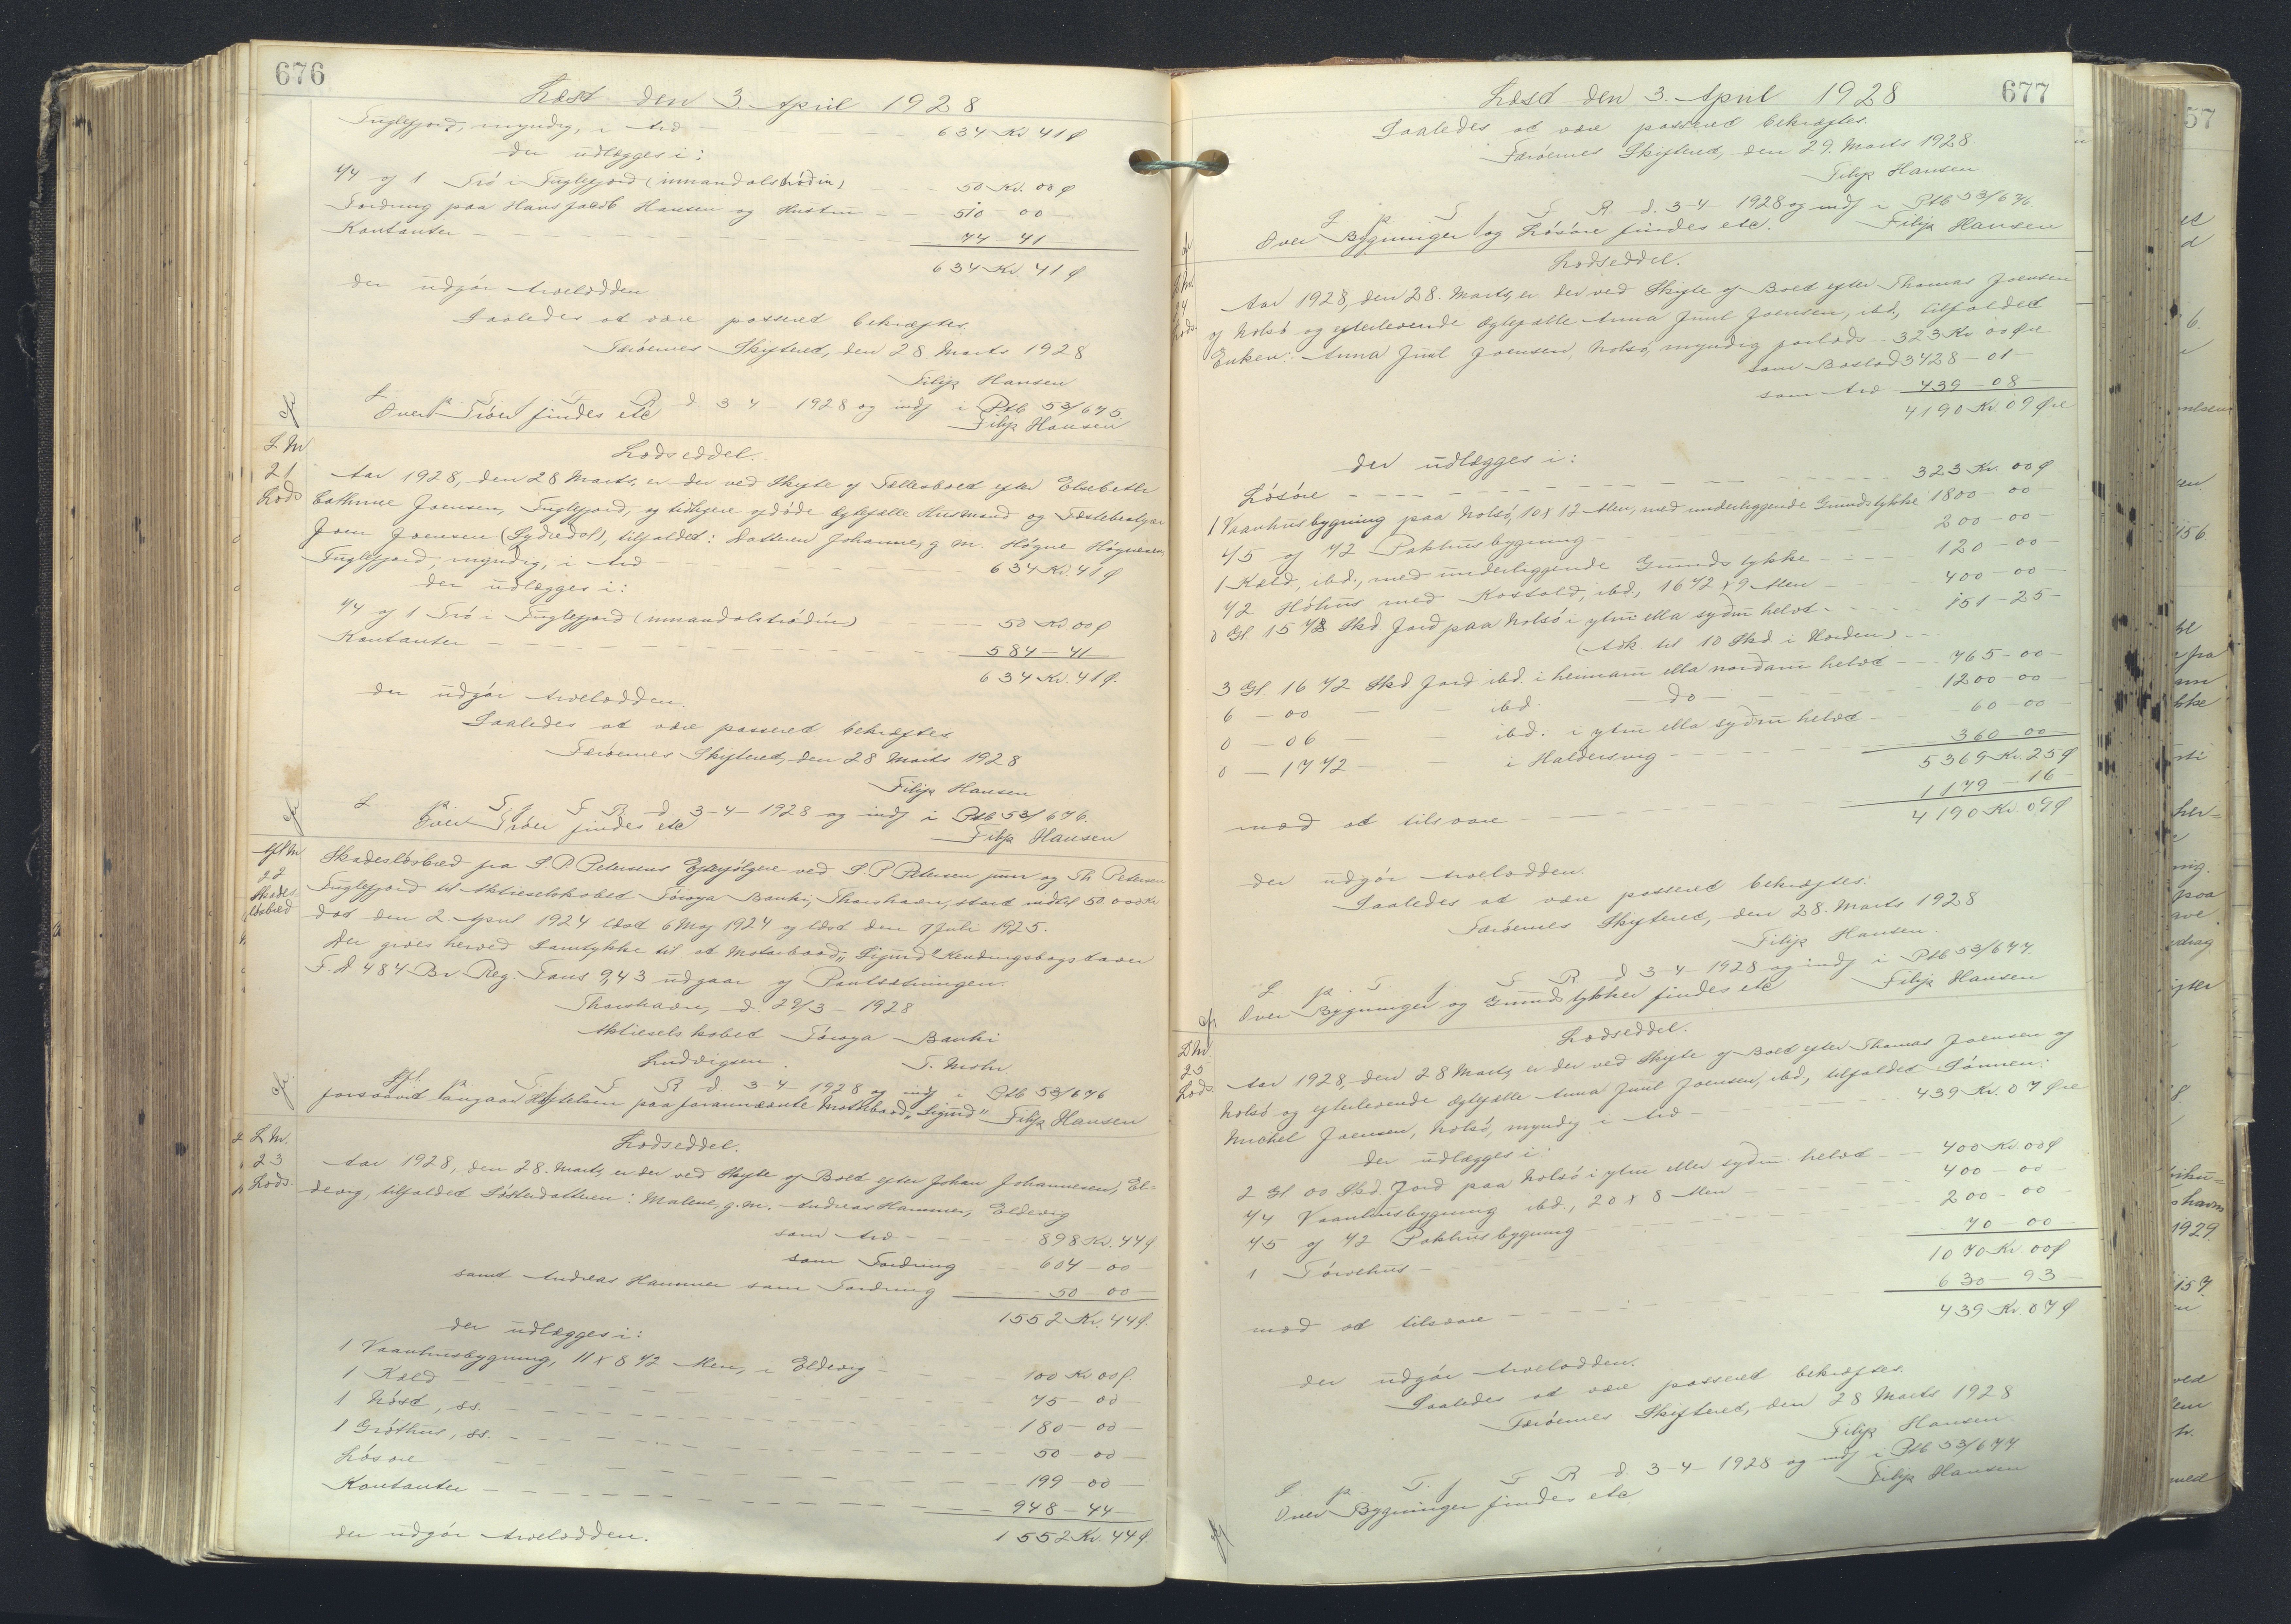 676
Læst den 3. April 1928
Fuglefjord, myndig, i Arv — 634 Kr 41 Ø
der udlægges i:
1/4 af 1 Trö i Fuglefjord (innandalströdin) — 50 Kr. 00 Ø
Fordring paa Hans Jacob Hansen og Hustru — 510 — 00 —
Kontanter — 74 — 41
634 Kr. 41 Ø
der udgör Arvelodden.
Saaledes at være passeret bekræftes.
Færöernes Skifteret, den 28 Marts 1928
Filip Hansen
L. p. T. f. F. R. d. 3-4-1928 og indf i Ptb 53/675.
Over Tröen findes etc
Filip Hansen
L Nr
21
Lods
Lodseddel.
Aar 1928, den 28 Marts, er der ved Skifte af Fællesboet efter Elsebeth
Cathrine Joensen, Fuglefjord, og tidligere afdöde Ægtefælle Husmand og Fæstebruger
Joen Joensen (Sydredal), tilfaldet: Datteren Johanne, g. m. Högne Högnesen,
Fuglefjord, myndig, i Arv — 634 Kr. 41 Ø
der udlægges i:
1/4 af 1 Trö i Fuglefjord (innandalströdin) — 50 Kr 00 Ø
Kontanter — 584 — 41
634 Kr. 41 Ø.
der udgör Arvelodden.
Saaledes at være passeret bekræftes
Færöernes Skifteret, den 28 Marts 1928
Filip Hansen
L. p. T. f. F. R. d. 3-4-1928 og indf i Ptb 53/676.
Over Tröen findes etc
Filip Hansen
Afl Nr
22
Skades
lösbred
Skadeslösbred fra S. P. Petersens Efterfölgere ved S. P. Petersen junr og Th Petersen
Fuglefjord til Aktieselskabet Föroya Banki, Thorshavn, stort indtil 50.000 Kr
dat den 2. April 1924 læst 6 Maj 1924 og læst den 1 Juli 1925.
Der gives herved Samtykke til at Motorbaad "Sigurd" Kendingsbogstaver
F. D 484 Br. Reg. Tons 9,43 udgaar af Pantsætningen.
Thorshavn, d. 29/3 - 1928
Aktieselskabet Föroya Banki
Ludvigsen. T. Mohr.
Afl. p. T. f. F. R. d. 3-4-1928 og indf i Ptb 53/676
forsaavidt angaar Hæftelsen paa forannævnte Motorbaad "Sigurd" Filip Hansen
L Nr.
23
Lods.
Lodseddel.
Aar 1928, den 28. Marts, er der ved Skifte af Boet efter Johan Johannesen, El=
devig, tilfaldet Sösterdatteren: Malene, g. m. Andreas Hammer, Eldevig
som Arv — 898 Kr. 44 Ø
som Fordring — 604 — 00 —
samt Andreas Hammer som Fordring — 50 — 00 —
1552 Kr. 44 Ø.
der udlægges i:
1 Vaanhusbygning, 11 x 8 1/2 Alen, i Eldevig — 100 Kr 00 Ø.
1 Kæld — 75 — 00 —
1 Nöst, ss. — 180 — 00 —
1 Gröthus, ss. — 50 — 00 —
Lösöre — 199 — 00 —
Kontanter — 948 — 44 —
der udgör Arvelodden. 1552 Kr. 44 Ø.
677
Læst den 3. April 1928
Saaledes at være passeret bekræftes.
Færöernes Skifteret, den 29. Marts 1928
Filip Hansen
L p. T. f. F. R. d. 3-4-1928 og indf i Ptb 53/676.
Over Bygninger og Lösöre findes etc.
Filip Hansen
Lodseddel.
Aar 1928, den 28. Marts, er der ved Skifte af Boet efter Thomas Joensen
af Nolsö og efterlevende Ægtefælle Anna Juul Joensen, ibd., tilfaldet
Enken: Anna Juul Joensen, Nolsö, myndig forlods — 323 Kr 00 Øre
som Boslod 3428 — 01 —
som Arv 439 — 08 —
4190 Kr. 09 Øre
der udlægges i:
Lösöre — 323 Kr. 00 Ø
1 Vaanhusbygning paa Nolsö, 10 x 12 Alen, med underliggende Grundstykke 1800 — 00 —
1/5 af 1/2 Pakhusbygning — 200 — 00 —
1 Kæld, ibd., med underliggende Grundstykke — 120 — 00 —
1/2 Höhus med Kostald, ibd., 16 1/2 x 9 Alen — 400 — 00 —
0 Gl 15 1/8 Skd. Jord paa Nolsö i ytru ella sydru helvt — 151 — 25 —
(Adk. til 10 Skd. i Norden)
3 Gl. 16 1/2 Skd Jord ibd. i heimaru ella nordaru helvt — 765 — 00 —
6 — 00 — ibd. — do — 1200 — 00 —
0 — 06 — ibd. i ytru ella sydru helvt — 60 — 00 —
0 — 17 1/2 — i Haldersvig — 360 — 00 —
5369 Kr. 25 Ø
mod at tilsvare — 1179 — 16 —
4190 Kr. 09 Ø
der udgör Arvelodden.
Saaledes at være passeret bekræftes.
Færöernes Skifteret, den 28. Marts 1928
Filip Hansen.
L p. T f F R d 3-4-1928 og indf i Ptb 53/677.
Over Bygninger og Grundstykker findes etc
Filip Hansen
L Nr.
25
Lods.
Lodseddel.
Aar 1928, den 28 Marts, er der ved Skifte af Boet efter Thomas Joensen af
Nolsö og efterlevende Ægtefælle Anna Juul Joensen, ibd., tilfaldet Sönnen:
Michel Joensen, Nolsö, myndig i Arv — 439 Kr. 07 Øre
der udlægges i:
2 Gl 00 Skd. Jord paa Nolsö i ytru eller sydru helvt — 400 Kr. 00 Ø
1/4 Vaanhusbygning ibd., 20 x 8 Alen — 400 — 00
1/5 af 1/2 Pakhusbygning — 200 — 00 —
1 Törvehus — 70 — 00 —
1070 Kr. 00 Ø
mod at tilsvare — 630 — 93 —
439 Kr. 07 Ø
der udgör Arvelodden.
Saaledes at være passeret bekræftes.
Færöernes Skifteret, den 28 Marts 1928
Filip Hansen
L. p. T. f. F R d. 3-4-1928 og indf i Ptb 53/677
Over Bygninger findes etc
Filip Hansen